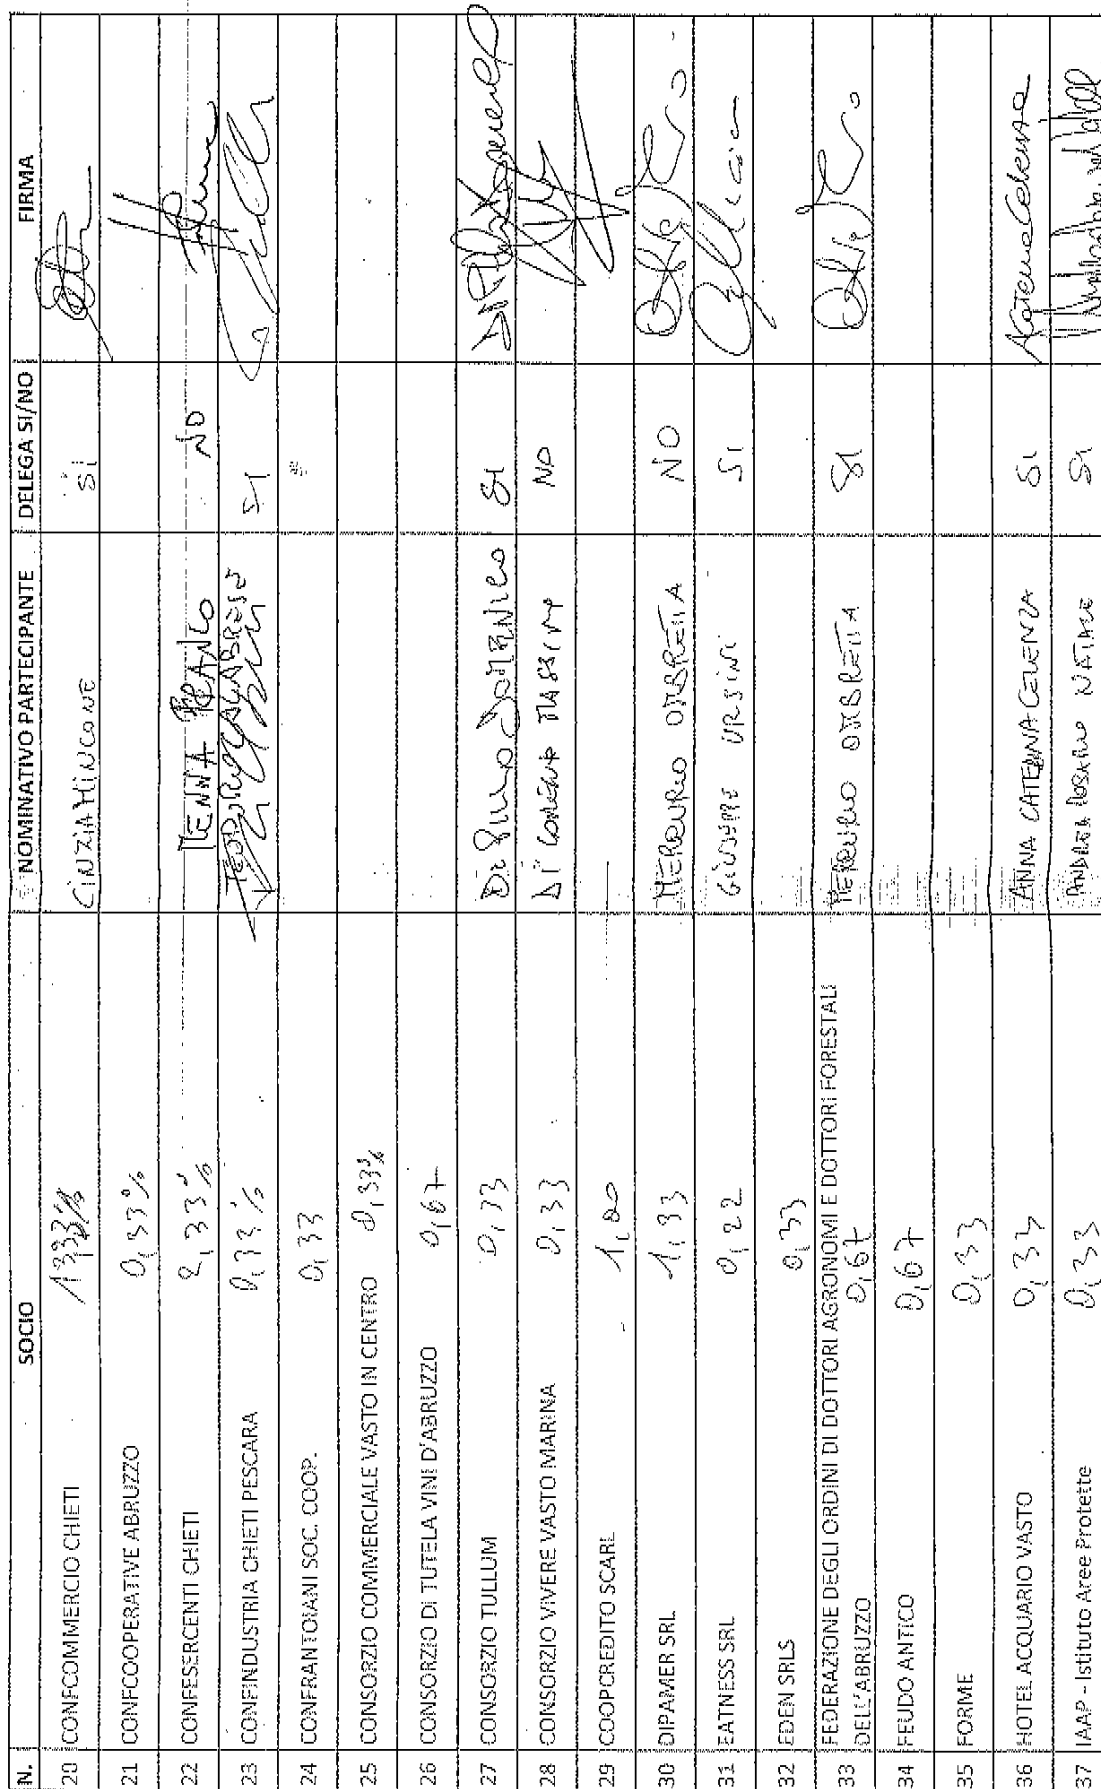 N. SOCIO NOMINATIVO PARTECIPANTE DELEGA SI/NO FIRMA
20 CONFCOMMERCIO CHIETI 1,33% CINZIA MINCONE Si
21 CONFCOOPERATIVE ABRUZZO 0,33%
22 CONFESERCENTI CHIETI 2,33% MENNA FRANCO NO
23 CONFINDUSTRIA CHIETI PESCARA 0,33% SI
24 CONFRANTOIANI SOC. COOP. 0,33
25 CONSORZIO COMMERCIALE VASTO IN CENTRO 0,33%
26 CONSORZIO DI TUTELA VINI D'ABRUZZO 0,67
27 CONSORZIO TULLUM 0,33 DOMENICO SI
28 CONSORZIO VIVERE VASTO MARINA 0,33 Di MASSIMO NO
29 COOPCREDITO SCARL 1,00
30 DIPAMER SRL 1,33 MERCURIO OMBRETTA NO
31 EATNESS SRL 0,22 GIUSEPPE URSINI SI
32 EDEN SRLS 0,33
33 FEDERAZIONE DEGLI ORDINI DI DOTTORI AGRONOMI E DOTTORI FORESTALI
DELL'ABRUZZO 0,67 MERCURIO OMBRETTA SI
34 FEUDO ANTICO 0,67
35 FORME 0,33
36 HOTEL ACQUARIO VASTO 0,33 ANNA CATENNA CELENZA SI Catenna Celenza
37 IAAP - Istituto Aree Protette 0,33 ANDREA ROSARIO NATALE SI